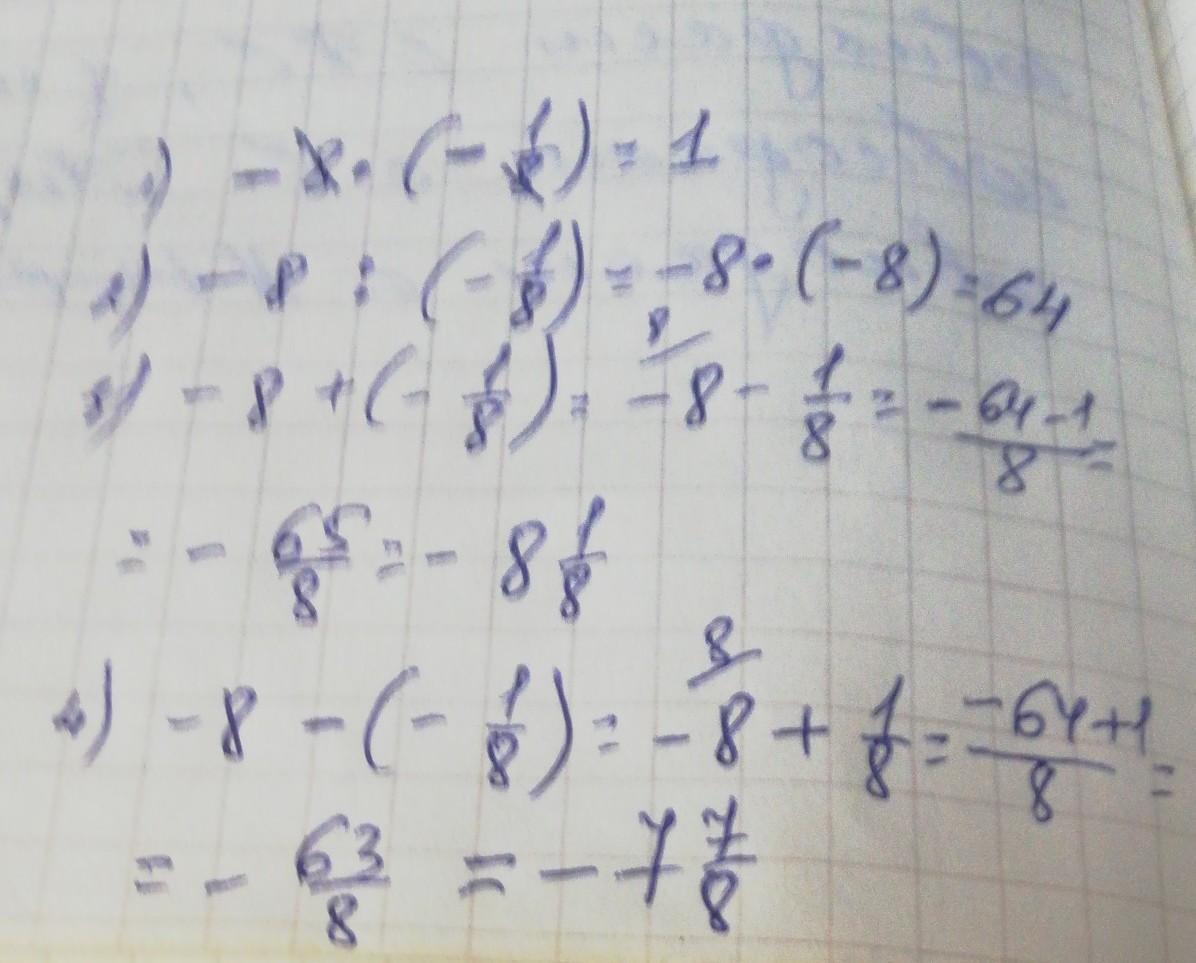 1) -8 · (-1/8) = 1
2) -8 : (-1/8) = -8 · (-8) = 64
3) -8 + (-1/8) = 8/ -8 - 1/8 = -64-1/8 =
= -65/8 = -8 1/8
4) -8 - (-1/8) = 8/ -8 + 1/8 = -64+1/8 =
= -63/8 = -7 7/8